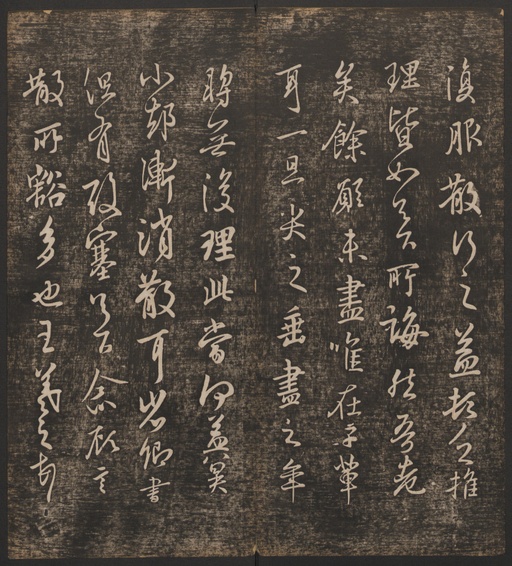 復服散行之益頓乏推
理皆如足下所誨然吾老
矣餘願未盡唯在子輩
耳一旦哭之垂盡之年
將無復理此當何益冥
小卻漸消散耳省卿書
但有酸塞足下念顧言
散所豁多也王羲之頓